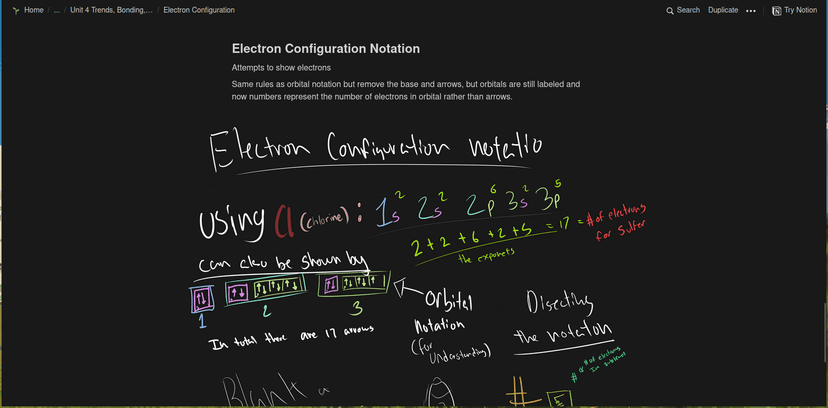 Home / ... / Unit 4 Trends, Bonding,... / Electron Configuration
Search Duplicate ••• Try Notion
Electron Configuration Notation
Attempts to show electrons
Same rules as orbital notation but remove the base and arrows, but orbitals are still labeled and
now numbers represent the number of electrons in orbital rather than arrows.
Electron Configuration notatio
using Cl (chlorine) : 1s² 2s² 2p⁶ 3s² 3p⁵
2+2+6+2+5 = 17 = # of electrons
for Sulfer
the exponets
can also be shown by
1 2 3
In total there are 17 arrows
Orbital
Notation
(for
Understanding)
Disecting
the notation
# of electrons
In
Blank a
# 5